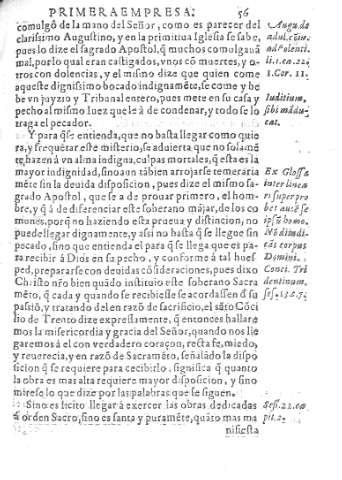 PRIMERA EMPRESA. 56
comulgô de la mano del Señor, como es parecer del
clarissimo Augustino, y en la primitiua Iglesia se sabe,
pues lo dize el sagrado Apostol, q̃ muchos comulgauã
mal, por lo qual eran castigados, vnos cõ muertes, y o-
tros con dolencias, y el mismo dize que quien come
aqueste dignissimo bocado indignamẽte, se come y be
be vn juyzio y Tribunal entero, pues mete en su casa y
pecho al mismo Iuez que le â de condenar, y todo se lo
traga el pecador.
Y para q̃ se entienda, que no basta llegar como quie
ra, y frequẽtar este misterio, se aduierta que no solamẽ
te hazen â vn alma indigna, culpas mortales, q̃ esta es la
mayor indignidad, sino aun tãbien arrojarse temeraria
mẽte sin la deuida disposicion, pues dize el mismo sa-
grado Apostol, que se a de prouar primero, el hom-
bre, y q̃ â de diferenciar este soberano mãjar, de los co
munes, porq̃ no haziendo esta prueua y distincion, no
puede llegar dignamente, y assi no basta q̃ se llegue sin
pecado, sino que entienda el para q̃ se llega que es pa-
ra recibir â Dios en su pecho, y conforme â tal hues-
ped, prepararse con deuidas cõsideraciones, pues dixo
Christo nr̃o bien quãdo instituio este soberano Sacra
mẽto, q̃ cada y quando se recibiesse se acordassen d̃ su
passiõ, y tratando del en razõ de sacrificio, el sãto Cõci
lio de Trento dize expressamente, q̃ entonces hallare
mos la misericordia y gracia del Señor, quando nos lle
garemos â el con verdadero coraçon, recta fe, miedo,
y reuerecia, y en razõ de Sacramẽto, señalãdo la dispo
sicion q̃ se requiere para recibirlo, significa q̃ quanto
la obra es mas alta requiere mayor disposicion, y sino
mirese lo que dize por las palabras que se siguen.
Sino es licito llegar â exercer las obras dedicadas
â orden Sacro, sino es santa y puramẽte, quãto mas ma
nifiesta
Augu. de
adul. cõiu.
ad Polenti.
li. 1. ca. 22.
1. Cor. 11.
Iuditium,
sibi mãdu-
cat.
Ex Glossa
inter linea
ri super pro
bet autẽ se
ipsũ homo.
Nõ diiudi-
cãs corpus
Domini.
Conci. Tri
dentinum.
Sess. 22. ca
pit. 2.